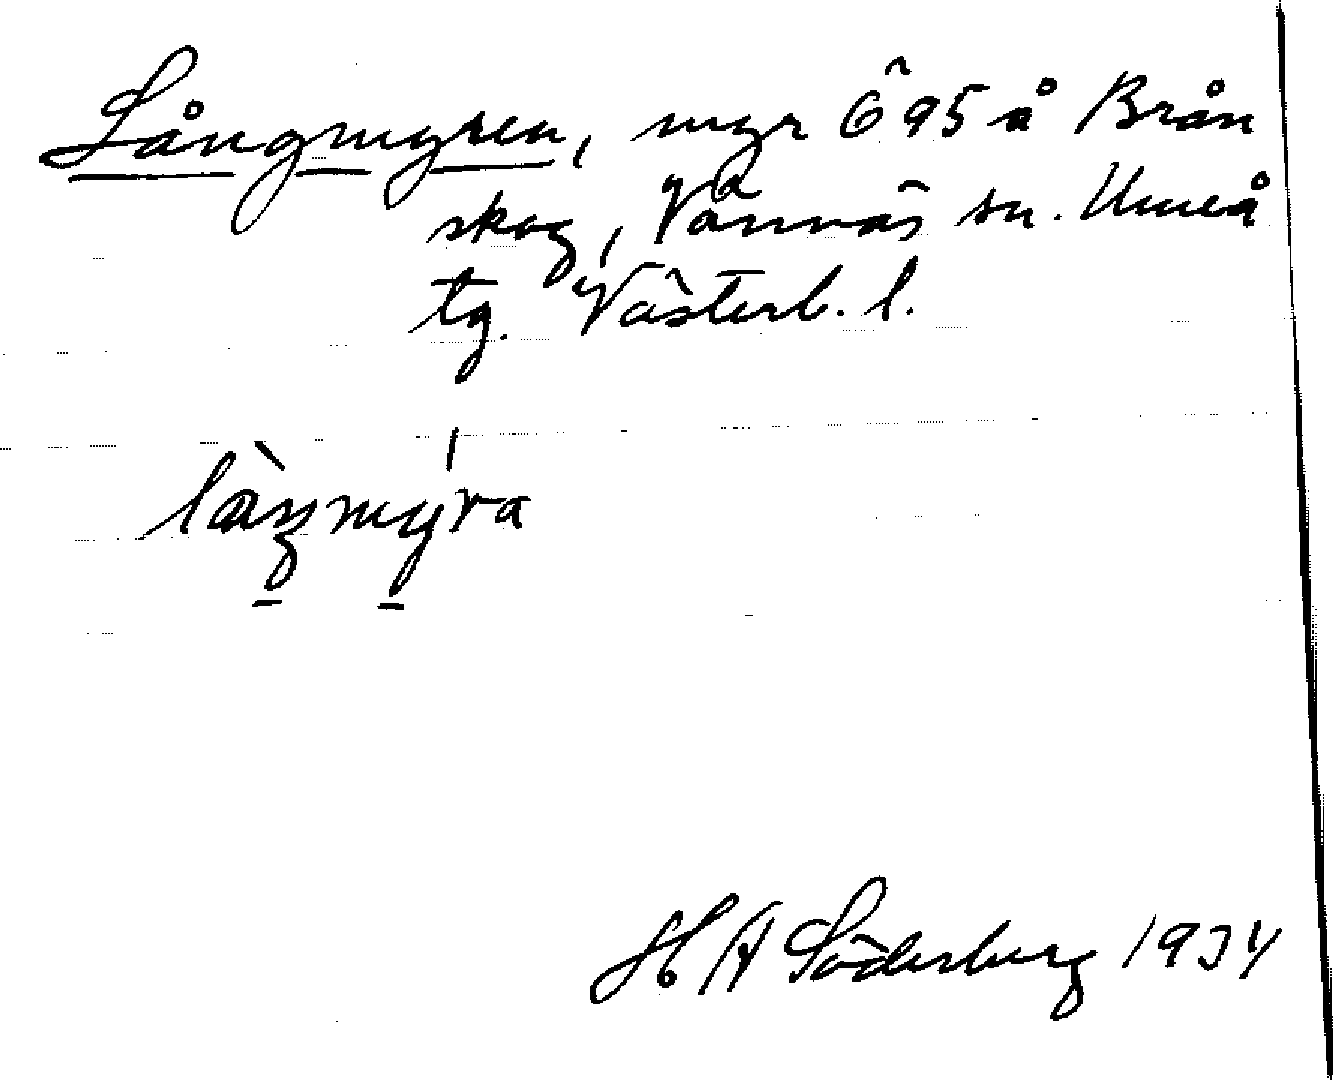 Långmyren, myr Ö 95 å Brån
skog, Vännäs sn. Umeå
tg. Västerb. l.
làŋmýra
H A Söderberg 1934